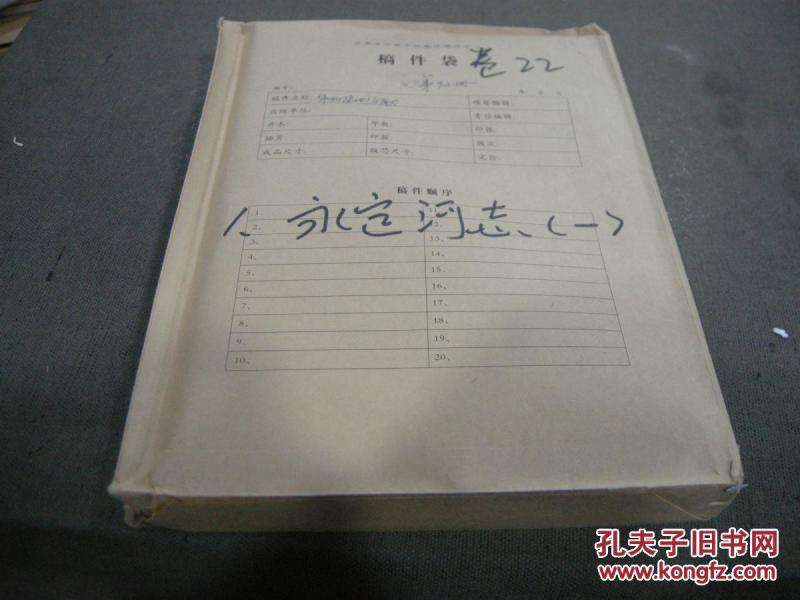 稿件袋 卷22
编号: 年 月 日
稿件名称: 情况编辑:
出版单位: 责任编辑:
开本: 字数: 印张:
插页: 印数: 版次:
成品尺寸: 版芯尺寸: 定价:
稿件顺序
1、永定河志、(一)
1、 11、
2、 12、
3、 13、
4、 14、
5、 15、
6、 16、
7、 17、
8、 18、
9、 19、
10、 20、
孔夫子旧书网
www.kongfz.com